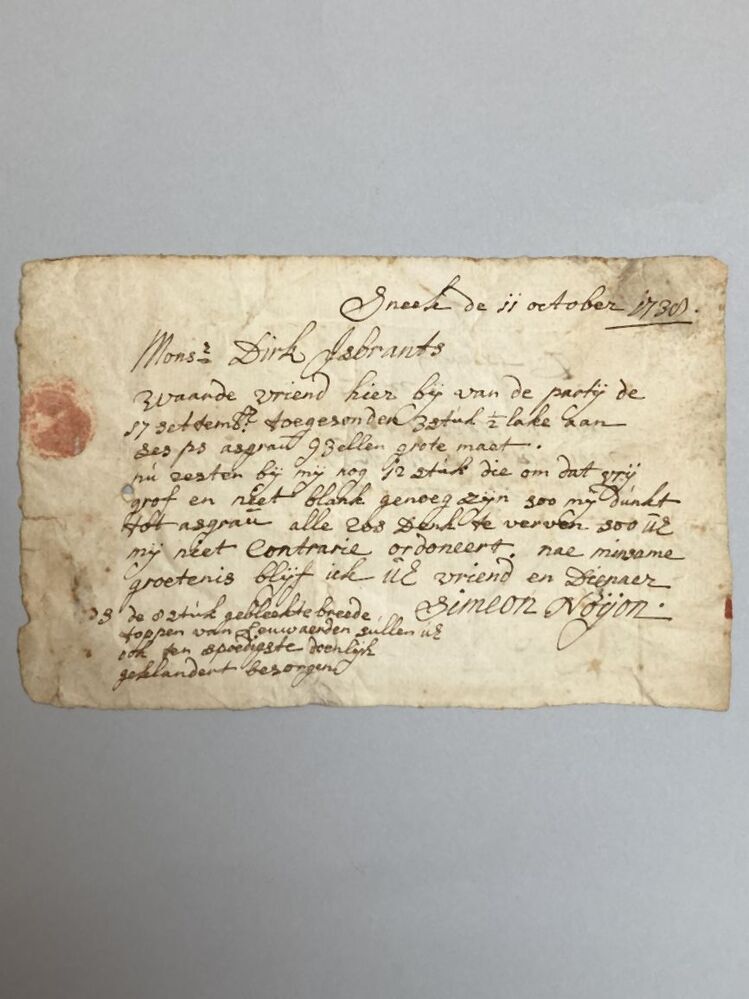 Sneek de 11 october 1738.
Monsr Dirk Isbrants
Waarde vriend hier bij van de party de
17 settembr toegesonden 3 stuk ½ lake aan
ses ps asgrau 93 ellen grote maet.
nu resten bij mij nog 12 stuk die om dat vrij
grof en niet blank genoeg zijn soo mij dunkt
tot asgrau alle ros denk te verven soo UE
mij niet Contrarie ordoneert. nae minsame
groetenis blijf ick UE vriend en Dienaer
Simeon Noijon.
PS de 8 stuk gebleekte breede
toppen van Leuwaerden sullen UE
ook ten spoedigste doenlijk
geklandert besorgen